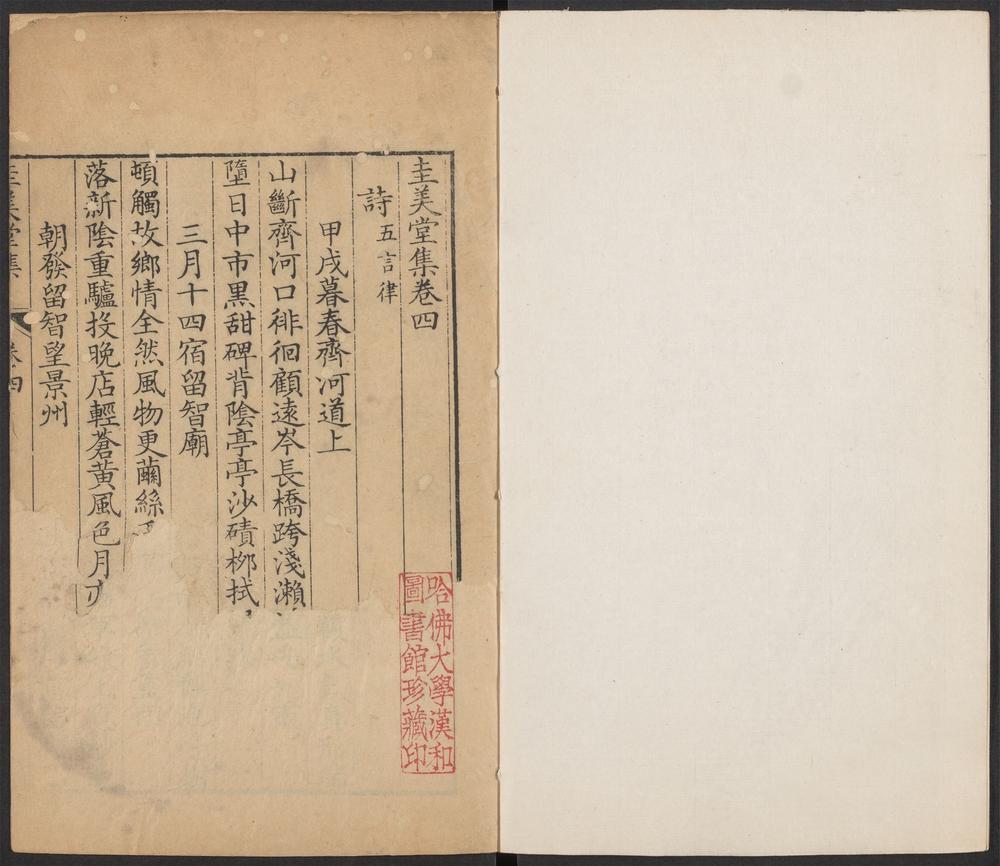 圭美堂集卷四
詩五言律
甲戌暮春齊河道上
山斷齊河口徘徊顧遠岑長橋跨淺瀨
墮日中市黑甜碑背陰亭亭沙磧柳拭
三月十四宿留智廟
頓觸故鄉情全然風物更繭絲
落新陰重驢投晚店輕蒼黃風色月
朝發留智望景州
圭美堂集 卷四
哈佛大學漢和
圖書館珍藏印